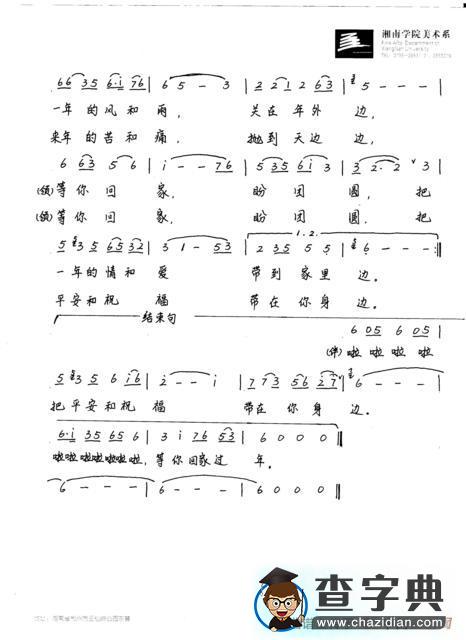 湘南学院美术系
Fine Arts Department of
Xiangnan University
6 6 3 5 6·i 7 6 | 6 5 - 3 | 2 2 1 2 6 3 | 5 - - - |
一年的风和雨， 关在年外 边，
来年的苦和痛， 抛到天边 边，
6 6 3 5 6 | i - - 7 6 | 5 3 5 6 i 3 | 3 2· 2 ∨ 3 |
(领)等你回 家， 盼团 圆， 把
(领)等你回 家， 盼团 圆， 把
5 3 5 6 5 3 2 | 3 1 - 5 3 | 2 3 5 5 5 | 6 - - - :||
1. 2.
一年的情和 爱 带到家里 边。
平安和祝 福 带在你身 边。
结束句
6 0 5 6 0 5 |
(伴)啦 啦啦 啦啦
5 3 5 6 i 6 | 2 - - i | 7 7 3 5 6 2 7 | 6 - - - |
把平安和祝 福 带在你身 边。
6·i 3 5 6 5 6 | 3 i 7 6 5 3 | 6 0 0 0 ||
啦啦啦啦啦啦啦，等你回家过 年。
6 - - - | 6 - - - | 6 0 0 0 ||
查字典
www.chazidian.com